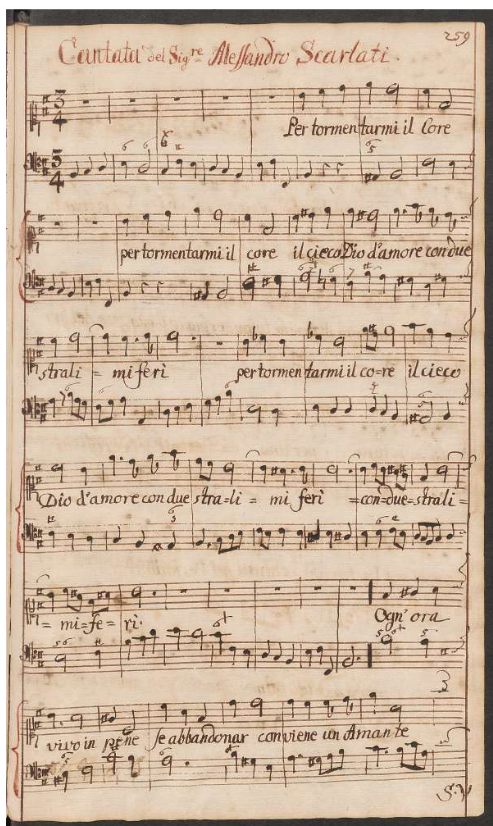 259
Cantata del Sig.re Alessandro Scarlati.
Per tormentarmi il Core
per tormentarmi il core il cieco Dio d'amore con due
strali = mi ferì per tormentarmi il co=re il cieco
Dio d'amore con due stra=li = mi ferì =con=due=strali=
= mi=fe=rì.
Ogn'ora
vivo in pene se abbandonar conviene un Amante